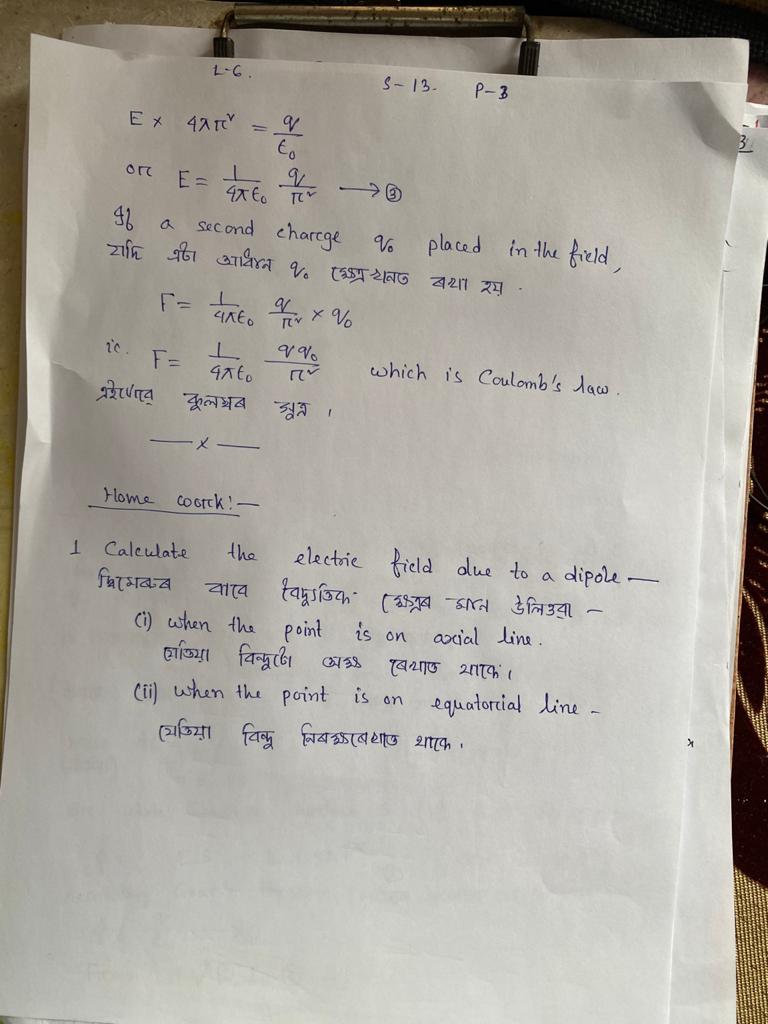 L-6. S-13. P-3
E × 4πr² = q/ε₀
or E = 1/4πε₀ q/r² ⟶ ③
If a second charge q₀ placed in the field,
যদি এটা আধান q₀ ক্ষেত্ৰখনত ৰখা হয়.
F = 1/4πε₀ q/r² × q₀
ie. F = 1/4πε₀ qq₀/r² which is Coulomb's law.
এইটোৱে কুলম্বৰ সূত্ৰ।
— x —
Home work:—
1 Calculate the electric field due to a dipole —
দ্বিমেৰুৰ বাবে বৈদ্যুতিক ক্ষেত্ৰৰ মান উলিওৱা –
(i) when the point is on axial line.
যেতিয়া বিন্দুটো অক্ষ ৰেখাত থাকে।
(ii) when the point is on equatorial line –
যেতিয়া বিন্দু নিৰক্ষৰেখাত থাকে।
x
3